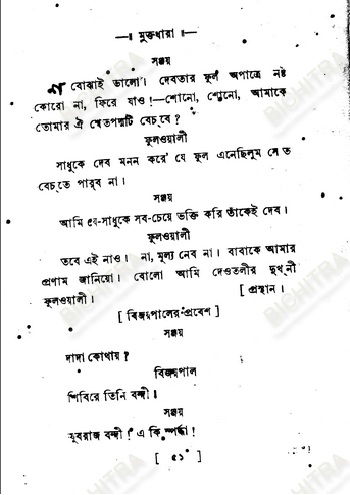 —॥ মুক্তধারা ॥—
সঞ্জয়
না বোঝাই ভালো। দেবতার ফুল অপাত্রে নষ্ট
কোরো না, ফিরে যাও !—শোনো, শোনো, আমাকে
তোমার ঐ শ্বেতপদ্মটি বেচ্‌বে ?
ফুলওয়ালী
সাধুকে দেব মনন করে' যে ফুল এনেছিলুম সে ত
বেচ্‌তে পারব না।
সঞ্জয়
আমি যে-সাধুকে সব-চেয়ে ভক্তি করি তাঁকেই দেব।
ফুলওয়ালী
তবে এই নাও। না, মূল্য নেব না। বাবাকে আমার
প্রণাম জানিয়ো। বোলো আমি দেওতলীর দুখ্‌নী
ফুলওয়ালী। [ প্রস্থান।
[ বিজয়পালের প্রবেশ ]
সঞ্জয়
দাদা কোথায় ?
বিজয়পাল
শিবিরে তিনি বন্দী।
সঞ্জয়
যুবরাজ বন্দী ! এ কি স্পর্দ্ধা !
[ ৫১ ]
BICHITRA